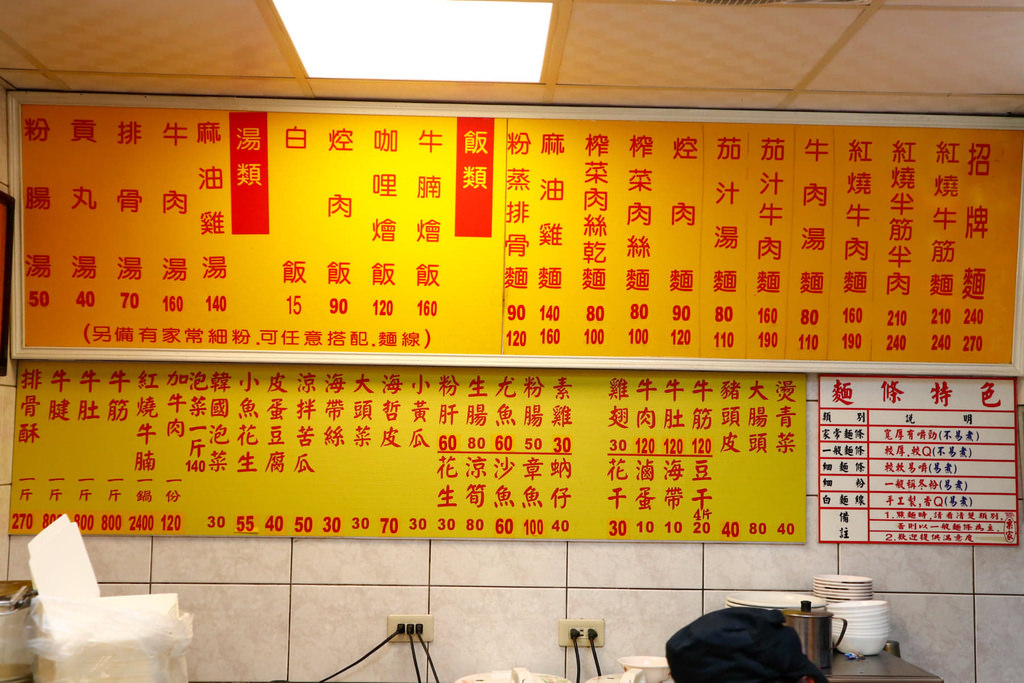 招牌麵 240 270
紅燒牛筋麵 210 240
紅燒半筋半肉 210 240
紅燒牛肉麵 160 190
牛肉湯麵 80 110
茄汁牛肉麵 160 190
茄汁湯麵 80 110
焢肉麵 90 120
榨菜肉絲麵 80 100
榨菜肉絲乾麵 80 100
麻油雞麵 140 160
粉蒸排骨麵 90 120
飯類
牛腩燴飯 160
咖哩燴飯 120
焢肉飯 90
白飯 15
湯類
麻油雞湯 140
牛肉湯 160
排骨湯 70
貢丸湯 40
粉腸湯 50
(另備有家常細粉.可任意搭配.麵線)
燙青菜 40
大腸頭 80
豬頭皮 40
牛筋 120
牛肚 120
牛肉 120
雞翅 30
豆干 4斤 20
海帶 10
滷蛋 10
花干 30
素雞 30
粉腸 50
尤魚 60
生腸 80
粉肝 60
蚋仔 40
章魚 100
沙魚 60
涼筍 80
花生 30
小黃瓜 30
海哲皮 70
大頭菜 30
海帶絲 30
涼拌苦瓜 50
皮蛋豆腐 40
小魚花生 55
韓國泡菜 30
泡菜一斤 140
加牛肉一份 120
紅燒牛腩一鍋 2400
牛筋一斤 800
牛肚一斤 800
牛腱一斤
排骨酥一斤 270
麵條特色
類別 說明
家常麵條 寬厚有嚼勁(不易煮)
一般麵條 較厚.較Q(不易煮)
細麵條 較軟易嚼(易煮)
細粉 一般稱冬粉(易煮)
白麵線 手工製.香Q(易煮)
備註 1.點麵時.請看清楚類別.
否則以一般麵條為主.
2.歡迎提供滿意度